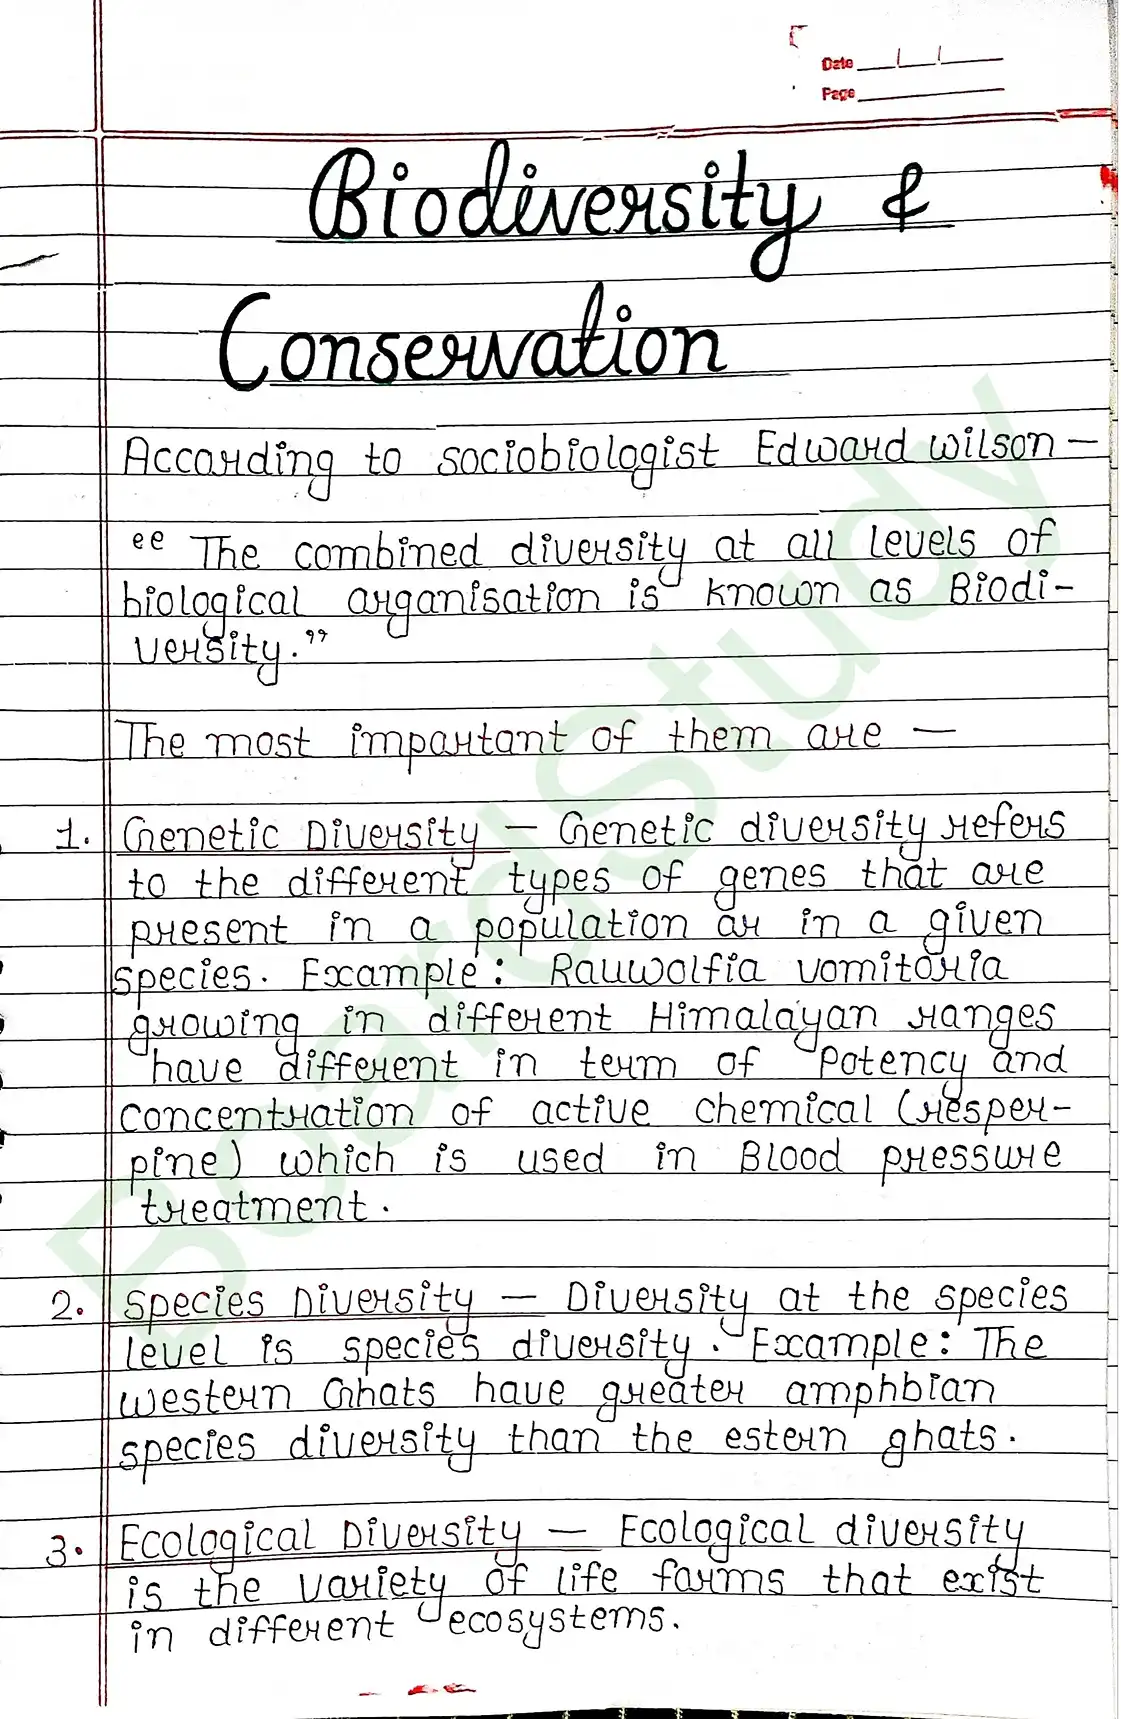 Date
Page
Biodiversity &
Conservation
According to sociobiologist Edward wilson —
“ The combined diversity at all levels of
biological organisation is known as Biodi-
versity.”
The most important of them are —
1. Genetic Diversity — Genetic diversity refers
to the different types of genes that are
present in a population or in a given
species. Example: Rauwolfia vomitoria
growing in different Himalayan ranges
have different in term of Potency and
concentration of active chemical (resper-
pine) which is used in Blood pressure
treatment.
2. Species Diversity — Diversity at the species
level is species diversity. Example: The
western Ghats have greater amphbian
species diversity than the estern ghats.
3. Ecological Diversity — Ecological diversity
is the variety of life forms that exist
in different ecosystems.
BoardStudy